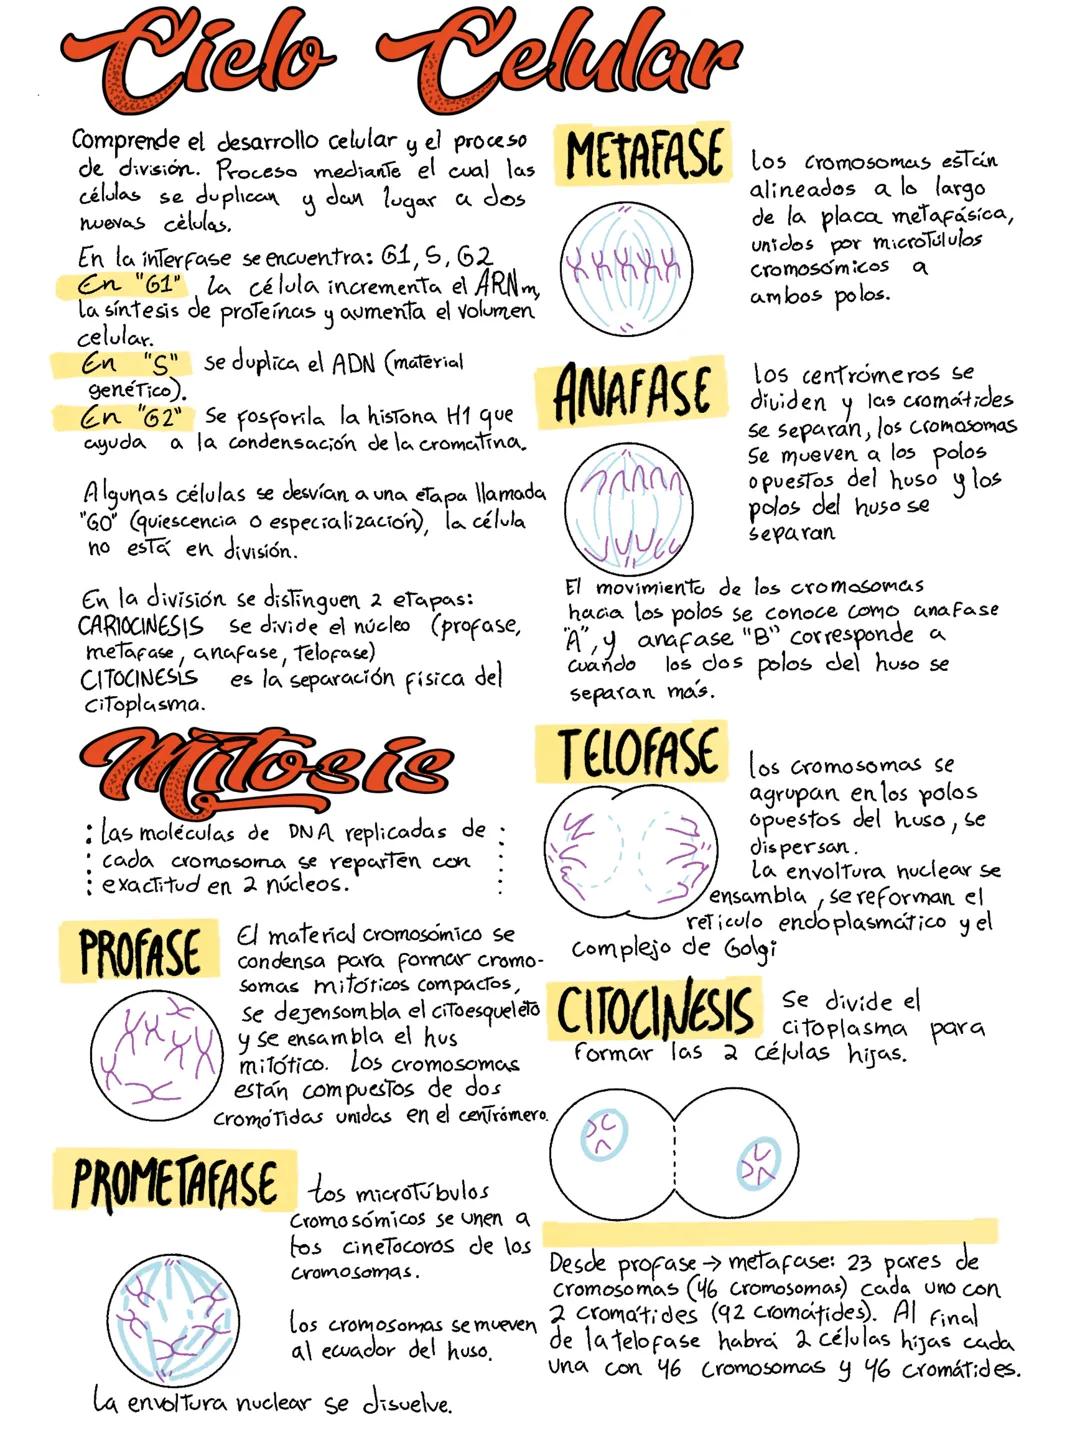 Ciclo Celular
Comprende el desarrollo celular y el proceso
de división. Proceso mediante el cual las
células se duplican y dan lugar a dos
nuevas células.
En la interfase se encuentra: G1, S, G2
En "G1" la célula incrementa el ARNm,
la síntesis de proteínas y aumenta el volumen
celular.
En "S" se duplica el ADN (material
genético).
En "G2" Se fosforila la histona H1 que
ayuda a la condensación de la cromatina.
Algunas células se desvían a una etapa llamada
"G0" (quiescencia o especialización), la célula
no está en división.
En la división se distinguen 2 etapas:
CARIOCINESIS se divide el núcleo (profase,
metafase, anafase, telofase)
CITOCINESIS es la separación física del
citoplasma.
Mitosis
: las moléculas de DNA replicadas de :
: cada cromosoma se reparten con :
: exactitud en 2 núcleos. :
PROFASE
El material cromosómico se
condensa para formar cromo-
somas mitóticos compactos,
se dejensombla el citoesqueleto
y se ensambla el hus
mitótico. Los cromosomas
están compuestos de dos
cromótidas unidas en el centrómero.
PROMETAFASE
Los microtúbulos
cromosómicos se unen a
los cinetocoros de los
cromosomas.
Los cromosomas se mueven
al ecuador del huso.
La envoltura nuclear se disuelve.
METAFASE
Los cromosomas están
alineados a lo largo
de la placa metafásica,
unidos por microtúlulos
cromosómicos a
ambos polos.
ANAFASE
Los centrómeros se
dividen y las cromátides
se separan, los cromosomas
Se mueven a los polos
opuestos del huso y los
polos del huso se
separan
El movimiento de los cromosomas
hacia los polos se conoce como anafase
"A", y anafase "B" corresponde a
cuando los dos polos del huso se
separan más.
TELOFASE
los cromosomas se
agrupan en los polos
opuestos del huso, se
dispersan.
La envoltura nuclear se
ensambla, se reforman el
retículo endoplasmático y el
complejo de Golgi
CITOCINESIS
Se divide el
citoplasma para
formar las 2 células hijas.
Desde profase → metafase: 23 pares de
cromosomas (46 cromosomas) cada uno con
2 cromátides (92 cromátides). Al final
de la telofase habrá 2 células hijas cada
una con 46 cromosomas y 46 cromátides.